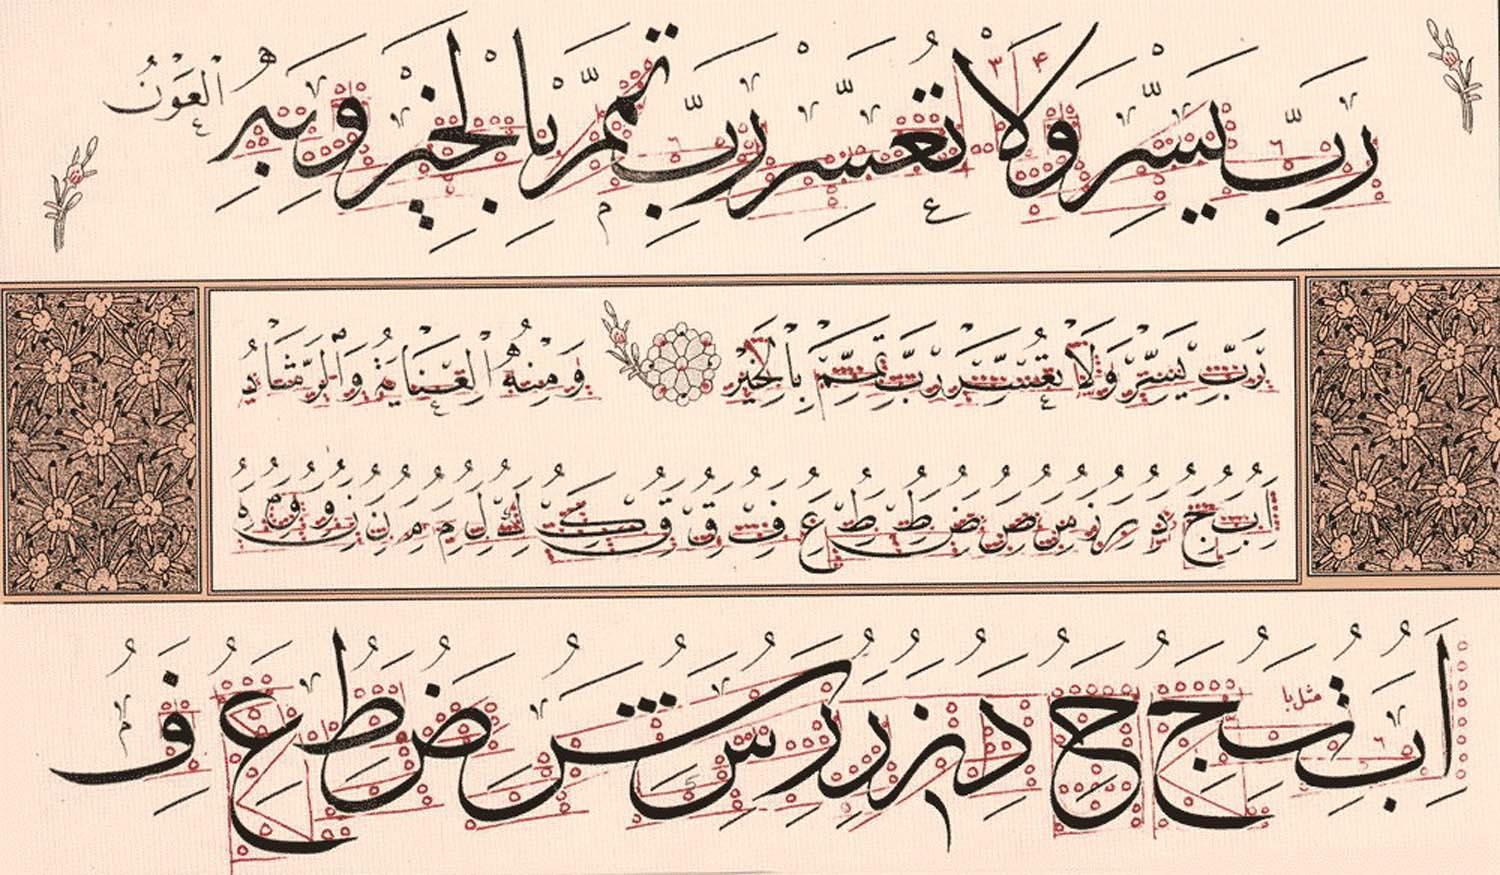 رَبِّ يَسِّرْ وَلَا تُعَسِّرْ رَبِّ تَمِّمْ بِالْخَيْرِ وَبِهِ الْعَوْنُ
رَبِّ يَسِّرْ وَلَا تُعَسِّرْ رَبِّ تَمِّمْ بِالْخَيْرِ وَمِنْهُ الْعِنَايَةُ وَالرَّشَادُ
ا ب ج د ر ز س ص ض ط ظ ع ف ق ك ل م ن و ه
ا ب ت ج ح د ذ ز ر س ش ض ط ع ف
مثل با